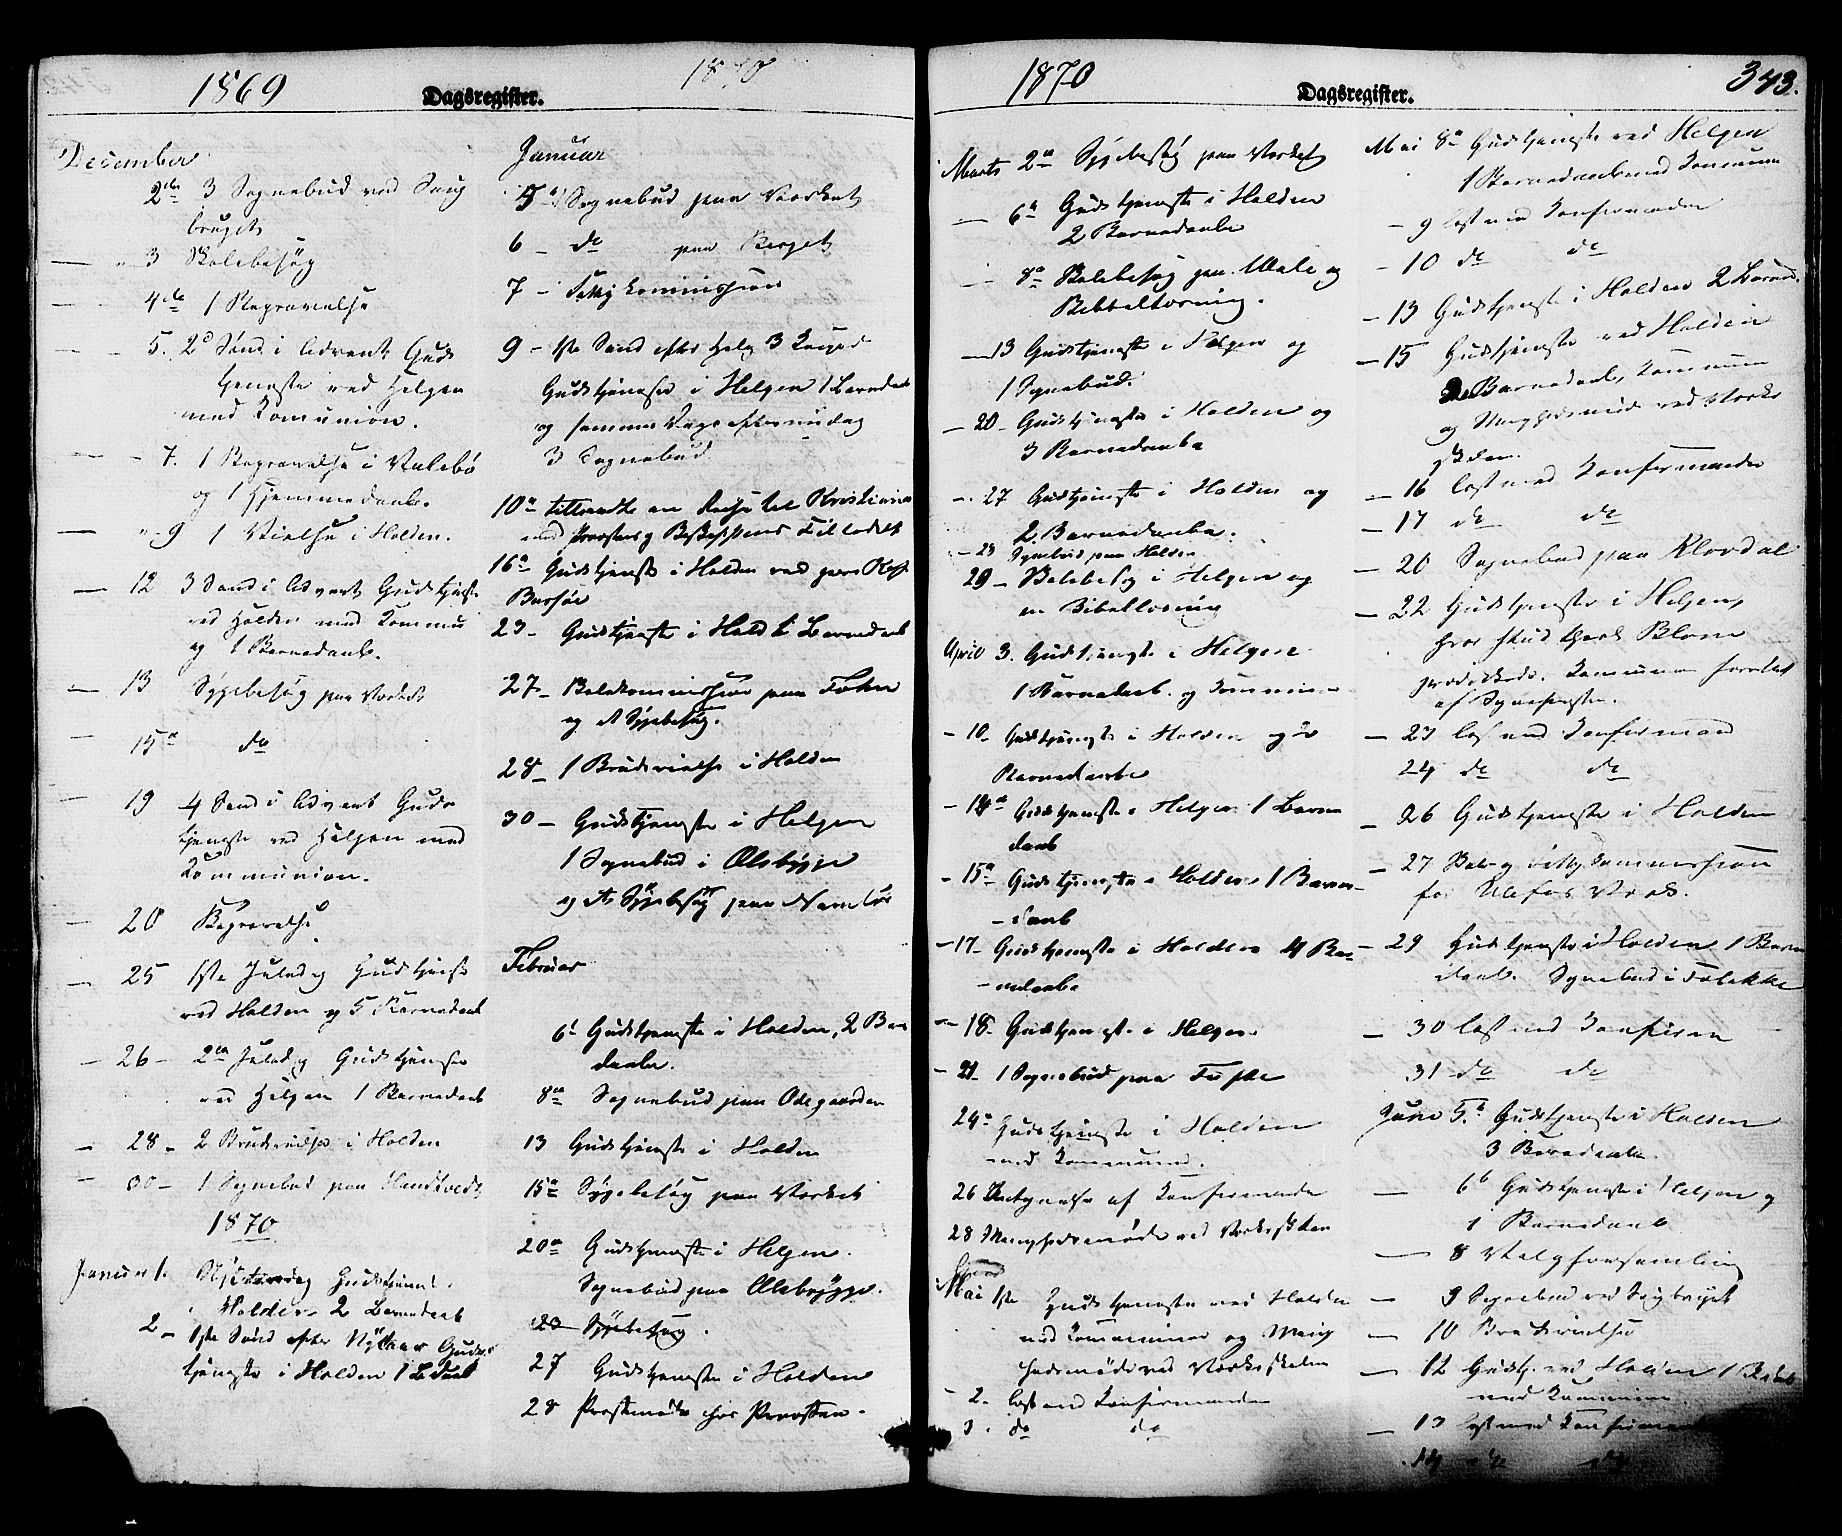 1869
Dagsregister.
1870
December
2den 3 Sognebud ved Saug
bruget
— " 3 Skolebesøg
— 4de 1 Begravelse
— 5. 2d Sønd i Advent Guds
tjeneste ved Helgen
med Komunion.
— 7. 1 Begravelse i Valebø
og 1 Hjemmedaab.
— " 9 1 Vielse i Holden.
— 12 3 Sønd i Advent Gudstjeneste
ved Holden med Kommu
og 1 Barnedaab.
— 13 Sygebesøg paa Værket
— 15de do
— 19 4 Sønd i Advent Guds
tjeneste ved Helgen med
Kommunion.
— 20 Begravelse
— 25 1ste Juledag Gudstjeneste
ved Holden og 5 Barnedaab
— 26 — 2den Juledag Gudstjeneste
ved Helgen 1 Barnedaab
— 28 — 2 Brudevielse i Holden
— 30 — 1 Sognebud paa
1870
Januar 1. Nytaarsdag Gudstjeneste
Holden 2 Barnedaab
2 — 1ste Sønd efter Nytaar Guds
tjeneste i Holden 1 B daab
Januar
5 1 Sognebud paa Værket
6 — do paa Berget
7 — Fattigkommission
9 — 1ste Sønd efter Helg 3 Konged
Gudstjeneste i Helgen 1 Barnedaab
og samme Dags eftermiddag
3 Sognebud
10de tiltraadte en Reise til Kristiania
med Provstens og Biskoppens Tilladelse
16de Gudstjeneste i Holden ved
23 — Gudstjeneste i Hold Barnedaab
27 — Skolekommission paa
og et Sygebesøg.
28 — 1 Brudevielse i Holden
30 — Gudstjeneste i Helgen
1 Sognebud i Olsbrygge
og et Sygebesøg paa
Februar
6te Gudstjeneste i Holden, 2 Bar
daabe.
8de Sognebud paa Ødegaarden
13 Gudstjeneste i Holden
15de Sygebesøg paa Værket
20de Gudstjeneste i Helgen.
Sognebud paa Olsbrygge.
23 — Sygebesøg.
27 Gudstjeneste i Holden
28 Provstemøde hos Provsten.
1870
Dagsregister.
343.
Marts 2den Sygebesøg paa Værket
— 6te Gudstjeneste i Holden
2 Barnedaabe
— 8de Skolebesøg paa og
Bibellæsning.
— 13 Gudstjeneste i Helgen og
1 Sognebud.
— 20 — Gudstjeneste i Holden og
3 Barnedaabe
— 27 Gudstjeneste i Holden og
2 Barnedaabe.
— 23 Sognebud paa Holden
29 — Skolebesøg i Helgen og
en Bibellæsning
April 3. Gudstjeneste i Helgen
1 Barnedaab. og Kommunion
— 10 Gudstjeneste i Holden og
Barnedaabe
— 14de Gudstjeneste i Helgen 1 Barne
daab
— 15de Gudstjeneste i Holden 1 Barne-
— daab
— 17 — Gudstjeneste i Holden 4 Bar-
— nedaabe
— 18. Gudstjeneste i Helgen.
— 21. 1 Sognebud paa
24de Gudstjeneste i Holden
med Kommunion.
26 Antegnelse af Konfirmander
28 Menighedsmøde ved Værksskolen
Mai 1ste Gudstjeneste ved Holden
med Kommunion og Menig
hedsmøde ved Værksskolen
— 2. læst med Konfirmander
3. do do
Mai 8de Gudstjeneste ved Helgen
1 Barnedaab med Kommunion
— 9 læst med Konfirmander
— 10 do do
— 13 Gudstjeneste i Holden 2 Barned.
— 15 Gudstjeneste ved Holden
Barnedaab, Kommunion
og Menighedsmøde ved Værks
skolen.
— 16 læst med Konfirmander
— 17 do do
— 20 Sognebud paa Klovdal
— 22 Gudstjeneste i Helgen,
hvor stud theol Blom
prædikede. Kommunion forrettet
af Sognepresten.
— 23 læst med Konfirmand
24 do do
— 26 Gudstjeneste i Holden
— 27 Skole og Fattigkommission
for Ulefos Værk.
— 29 Gudstjeneste i Holden 1 Barne
daab. Sognebud i
— 30 læst med Konfirm
31 do do
Juni 5te Gudstjeneste i Holden
3 Barnedaabe.
— 6te Gudstjeneste i Helgen og
1 Barnedaab
— 8 Valgforsamling
— 9 Sognebud ved Saugbruget
— 10 Brudevielse
— 12 Gudstj. ved Holden 1 B daab
med Kommunion.
— 13 læst med Konfirmander
14 do do